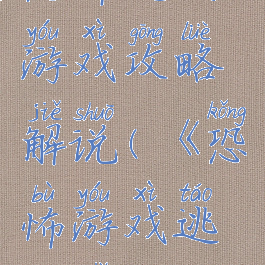 yóu xì gōng lüè
游戏攻略
jiě shuō kǒng
解说(《恐
bù yóu xì táo
怖游戏逃